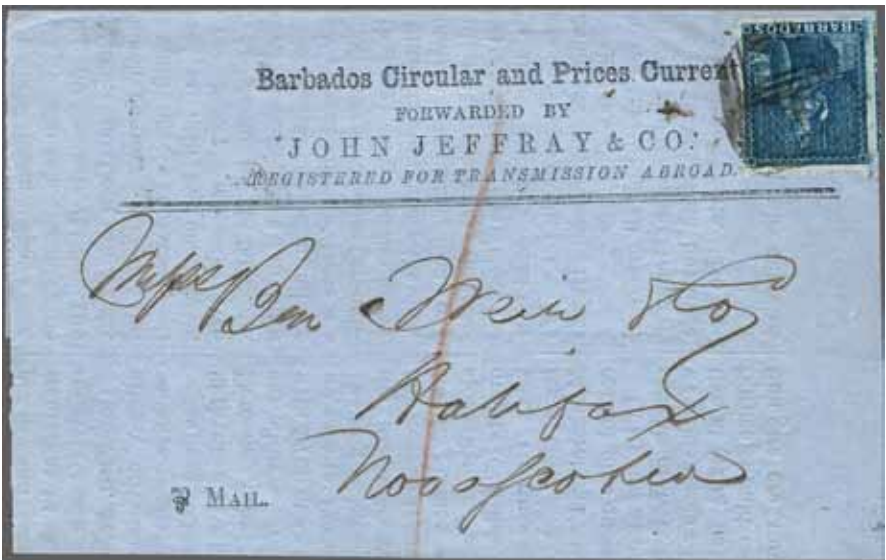 BARBADOS
Barbados Circular and Prices Current
FORWARDED BY
JOHN JEFFRAY & CO.
REGISTERED FOR TRANSMISSION ABROAD.
Ben Weir & Co
Halifax
Nova Scotia
MAIL.